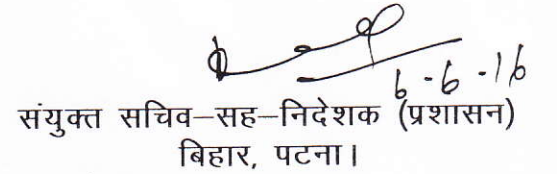 6-6-16
संयुक्त सचिव–सह–निदेशक (प्रशासन)
बिहार, पटना।